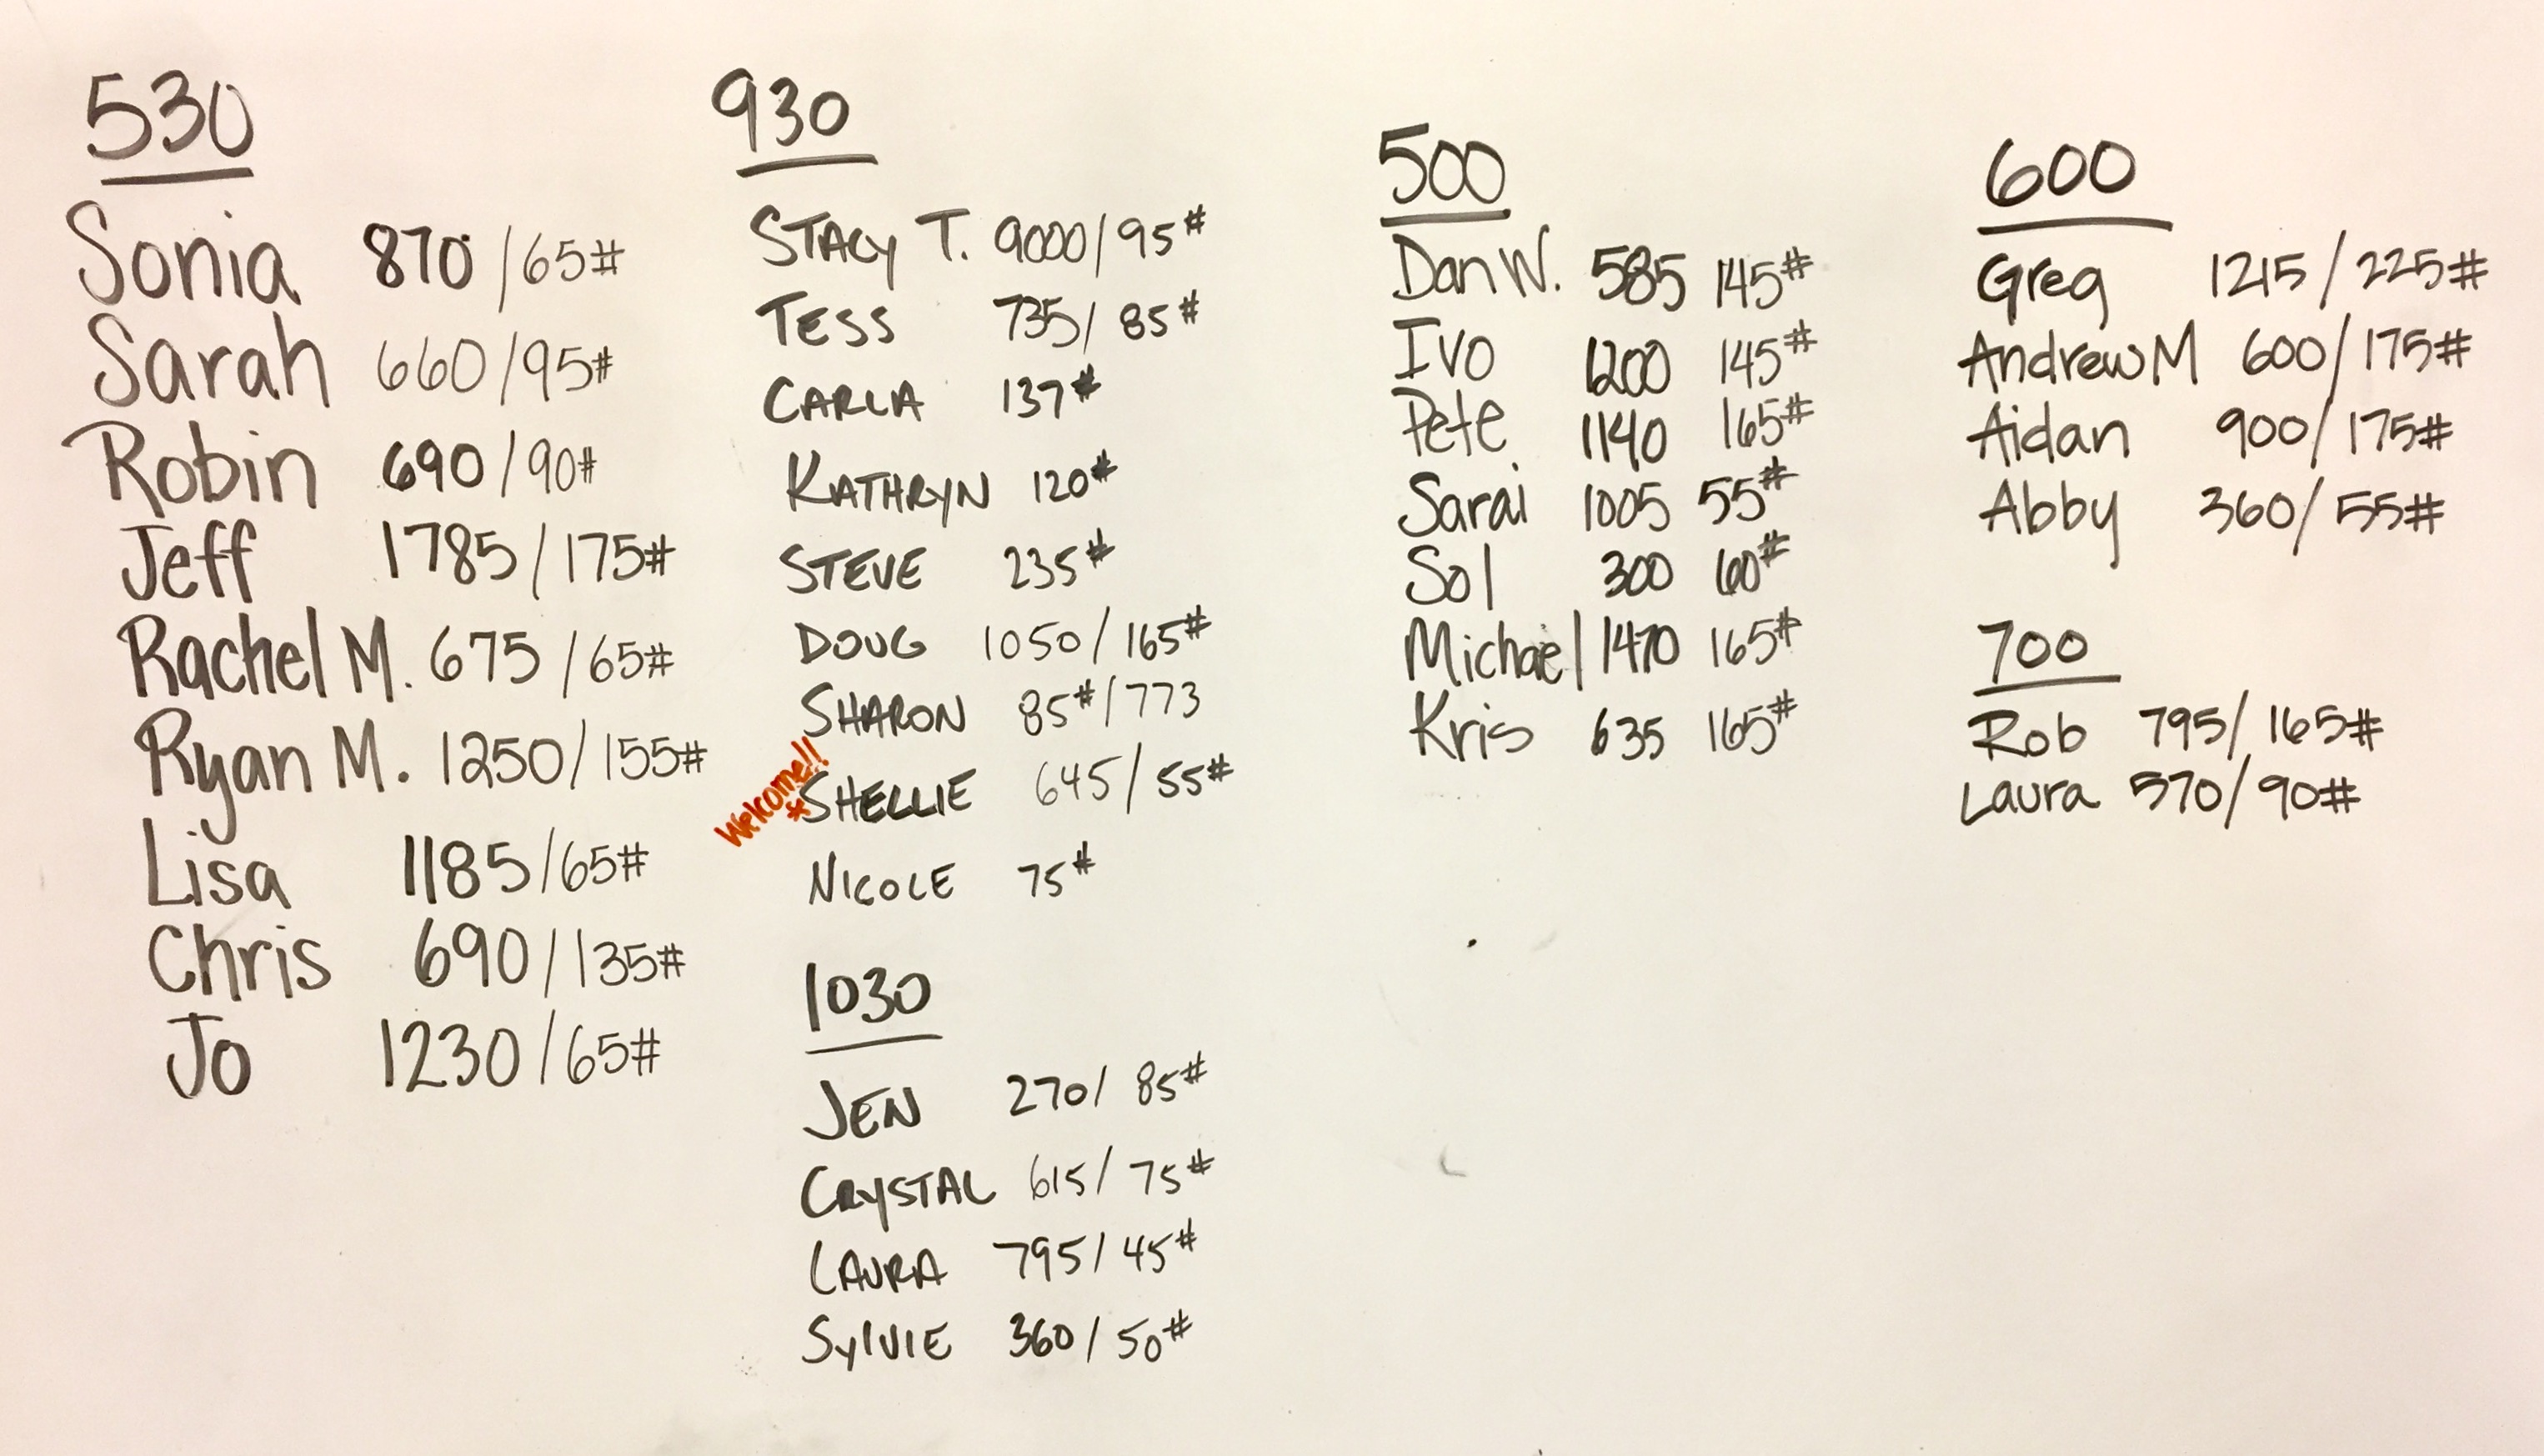 530
Sonia 870/65#
Sarah 660/95#
Robin 690/90#
Jeff 1785/175#
Rachel M. 675/65#
Ryan M. 1250/155#
Lisa 1185/65#
Chris 690/135#
Jo 1230/65#
930
STACY T. 9000/95#
TESS 735/85#
CARLA 137#
KATHRYN 120#
STEVE 235#
DOUG 1050/165#
SHARON 85#/773
Welcome!! *SHELLIE 645/55#
NICOLE 75#
1030
JEN 270/85#
CRYSTAL 615/75#
LAURA 795/45#
SYLVIE 360/50#
500
Dan W. 585 145#
Ivo 1200 145#
Pete 1140 165#
Sarai 1005 55#
Sol 300 60#
Michael 1470 165#
Kris 635 165#
600
Greg 1215/225#
Andrew M 600/175#
Aidan 900/175#
Abby 360/55#
700
Rob 795/165#
Laura 570/90#